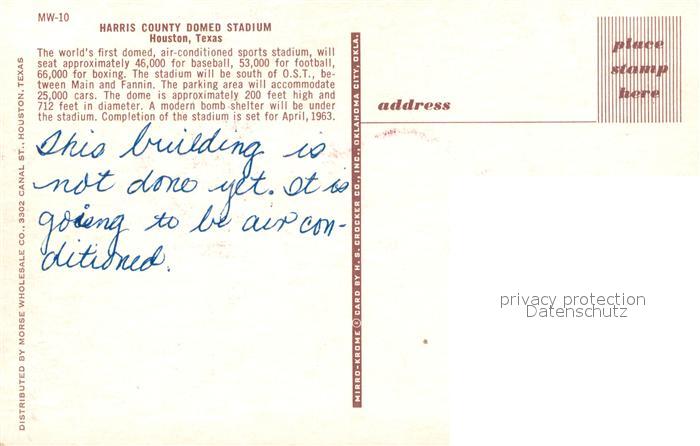 MW-10
HARRIS COUNTY DOMED STADIUM
Houston, Texas
The world's first domed, air-conditioned sports stadium, will
seat approximately 46,000 for baseball, 53,000 for football,
66,000 for boxing. The stadium will be south of O.S.T., be-
tween Main and Fannin. The parking area will accommodate
25,000 cars. The dome is approximately 200 feet high and
712 feet in diameter. A modern bomb shelter will be under
the stadium. Completion of the stadium is set for April, 1963.
This building is
not done yet. It is
going to be air con-
ditioned.
DISTRIBUTED BY MORSE WHOLESALE CO., 3302 CANAL ST., HOUSTON, TEXAS
MIRRO-KROME ® CARD BY H. S. CROCKER CO., INC., OKLAHOMA CITY, OKLA.
address
place
stamp
here
privacy protection
Datenschutz